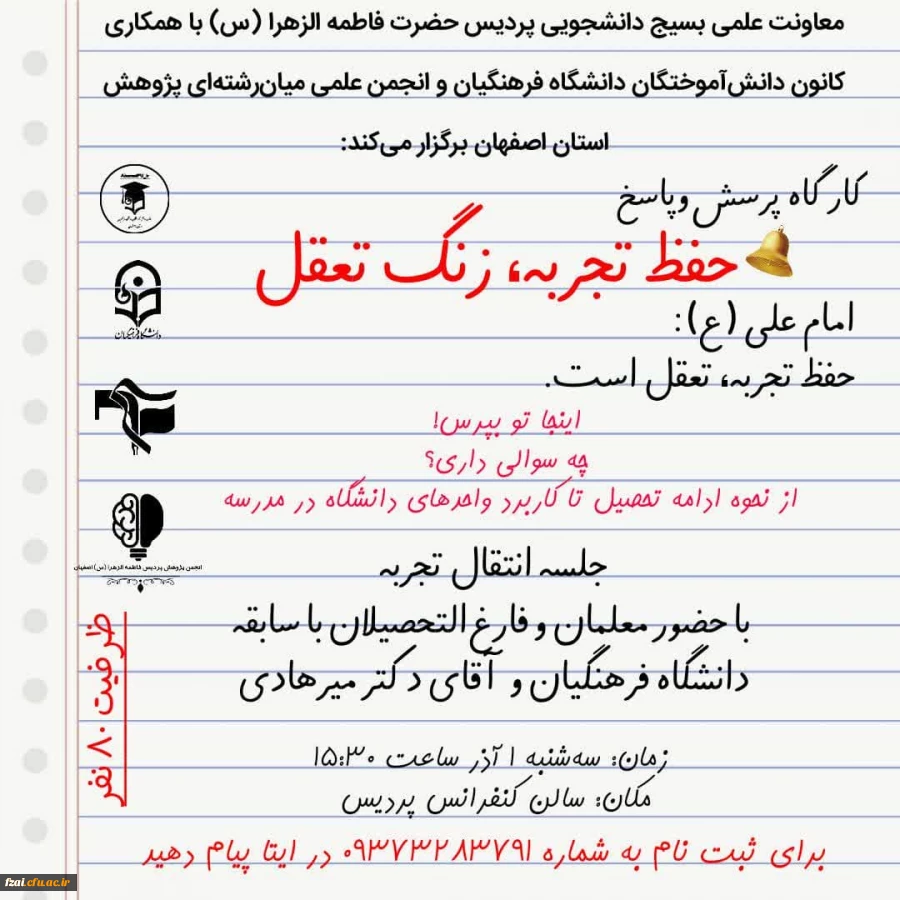 معاونت علمی بسیج دانشجویی پردیس حضرت فاطمه الزهرا (س) با همکاری
کانون دانش‌آموختگان دانشگاه فرهنگیان و انجمن علمی میان‌رشته‌ای پژوهش
استان اصفهان برگزار می‌کند:
کارگاه پرسش وپاسخ
حفظ تجربه، زنگ تعقل
امام علی (ع):
حفظ تجربه، تعقل است.
اینجا تو بپرس!
چه سوالی داری؟
از نحوه ادامه تحصیل تا کاربرد واحدهای دانشگاه در مدرسه
جلسه انتقال تجربه
با حضور معلمان و فارغ التحصیلان با سابقه
دانشگاه فرهنگیان و آقای دکتر میرهادی
زمان: سه‌شنبه ۱ آذر ساعت ۱۵:۳۰
مکان: سالن کنفرانس پردیس
برای ثبت نام به شماره ۰۹۳۷۳۲۸۳۷۹۱ در ایتا پیام دهید
ظرفیت ۸۰ نفر
دانشگاه فرهنگیان
انجمن پژوهش پردیس فاطمه الزهرا (س) اصفهان
fzai.cfu.ac.ir